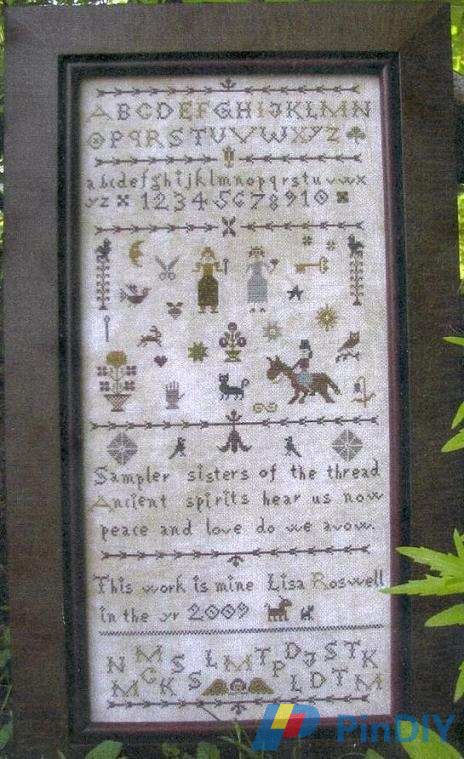 ABCDEFGHIJKLMN
OPQRSTUVWXYZ
abcdefghijklmnopqrstuvwx
yz 12345678910
Sampler sisters of the thread
Ancient spirits hear us now
peace and love do we avow.
This work is mine Lisa Roswell
in the yr 2009
N M S L M T D J S T K
M G K S P L D T M
PinDIY